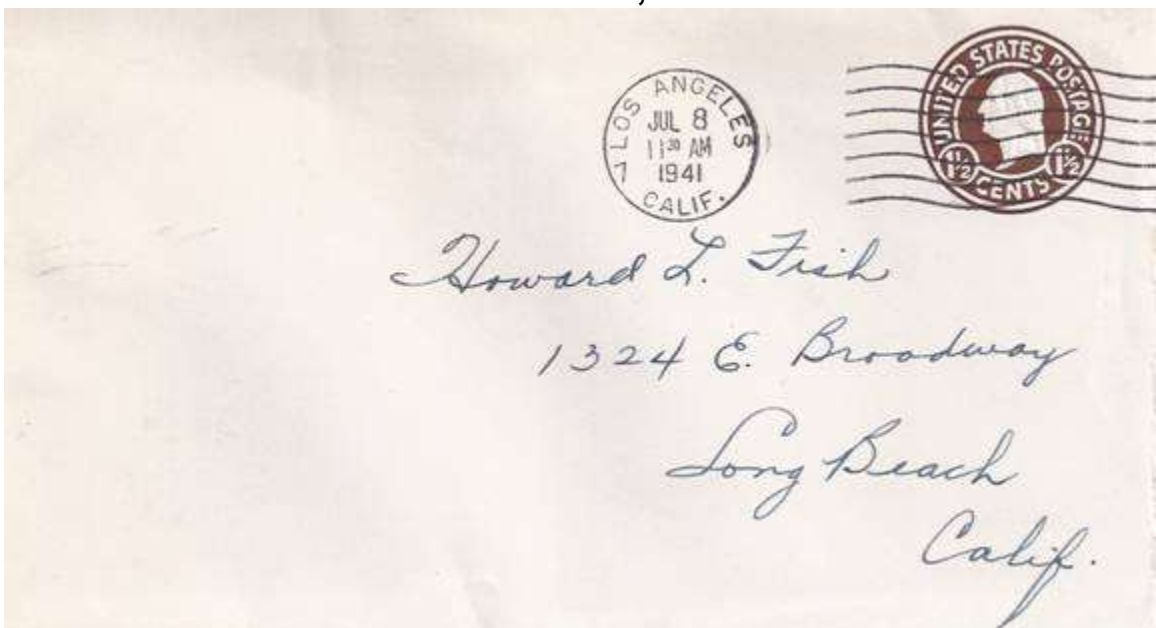 LOS ANGELES
JUL 8
11 30 AM
1941
7
CALIF.
UNITED STATES POSTAGE
1½ CENTS 1½
Howard L. Fish
1324 E. Broadway
Long Beach
Calif.